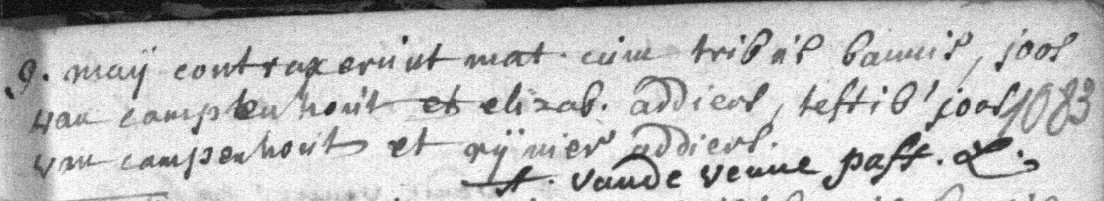 9. maÿ contraxerunt mat. cum trib's bannis, joos
van campenhout et elizab. addiers, testib' joos 1083
van campenhout et rÿnier addiers.
A. vande venne past. L.